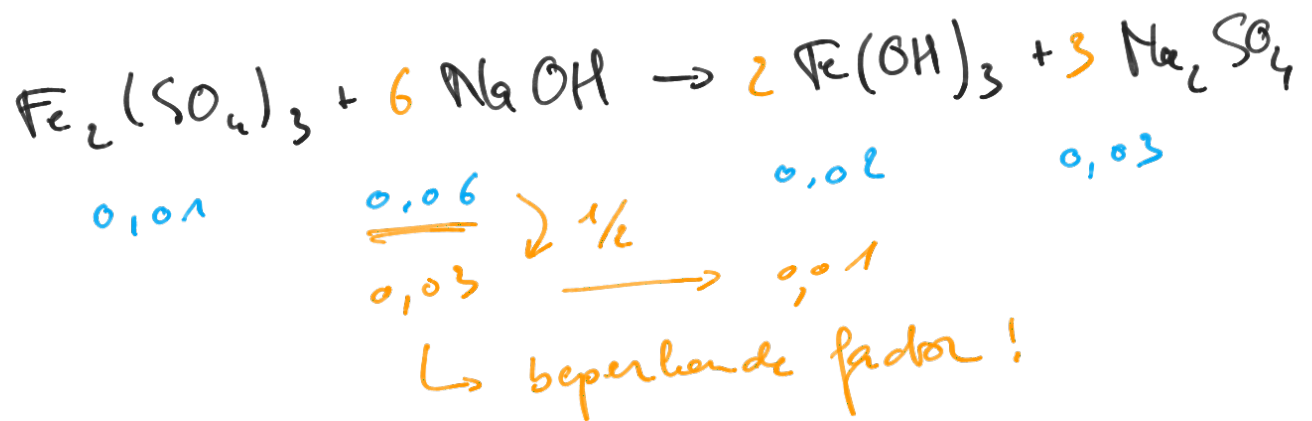 Fe₂(SO₄)₃ + 6 NaOH → 2 Fe(OH)₃ + 3 Na₂SO₄
0,01 0,06 0,02 0,03
1/2
0,03 → 0,01
↳ beperkende factor !